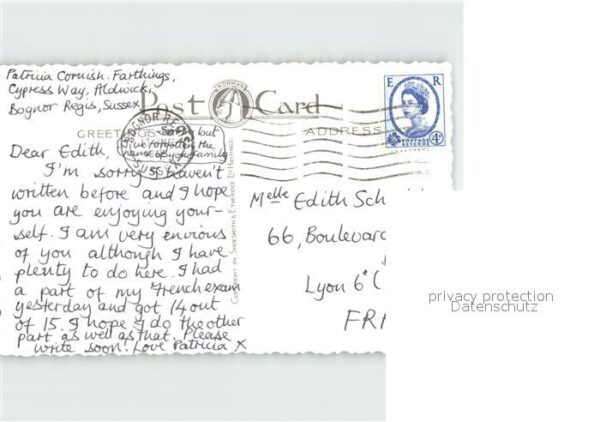 Patricia Cornish. Farthings,
Cypress Way, Aldwick,
Bognor Regis, Sussex
Post Card
GREETINGS
ADDRESS
BOGNOR REGIS
SUSSEX
E R
POSTAGE
REVENUE
4D
Sorry but
I've forgotten the
name of your family
Dear Edith,
I'm sorry I haven't
written before and I hope
you are enjoying your-
self. I am very envious
of you although I have
plenty to do here. I had
a part of my French exam
yesterday and got 14 out
of 15. I hope I do the other
part as well as that. Please
write soon! Love Patricia X
COPYRIGHT BY SHOESMITH & ETHERIDGE LTD HASTINGS
Melle Edith Sch
66, Boulevar
Lyon 6e (
FR
privacy protection
Datenschutz